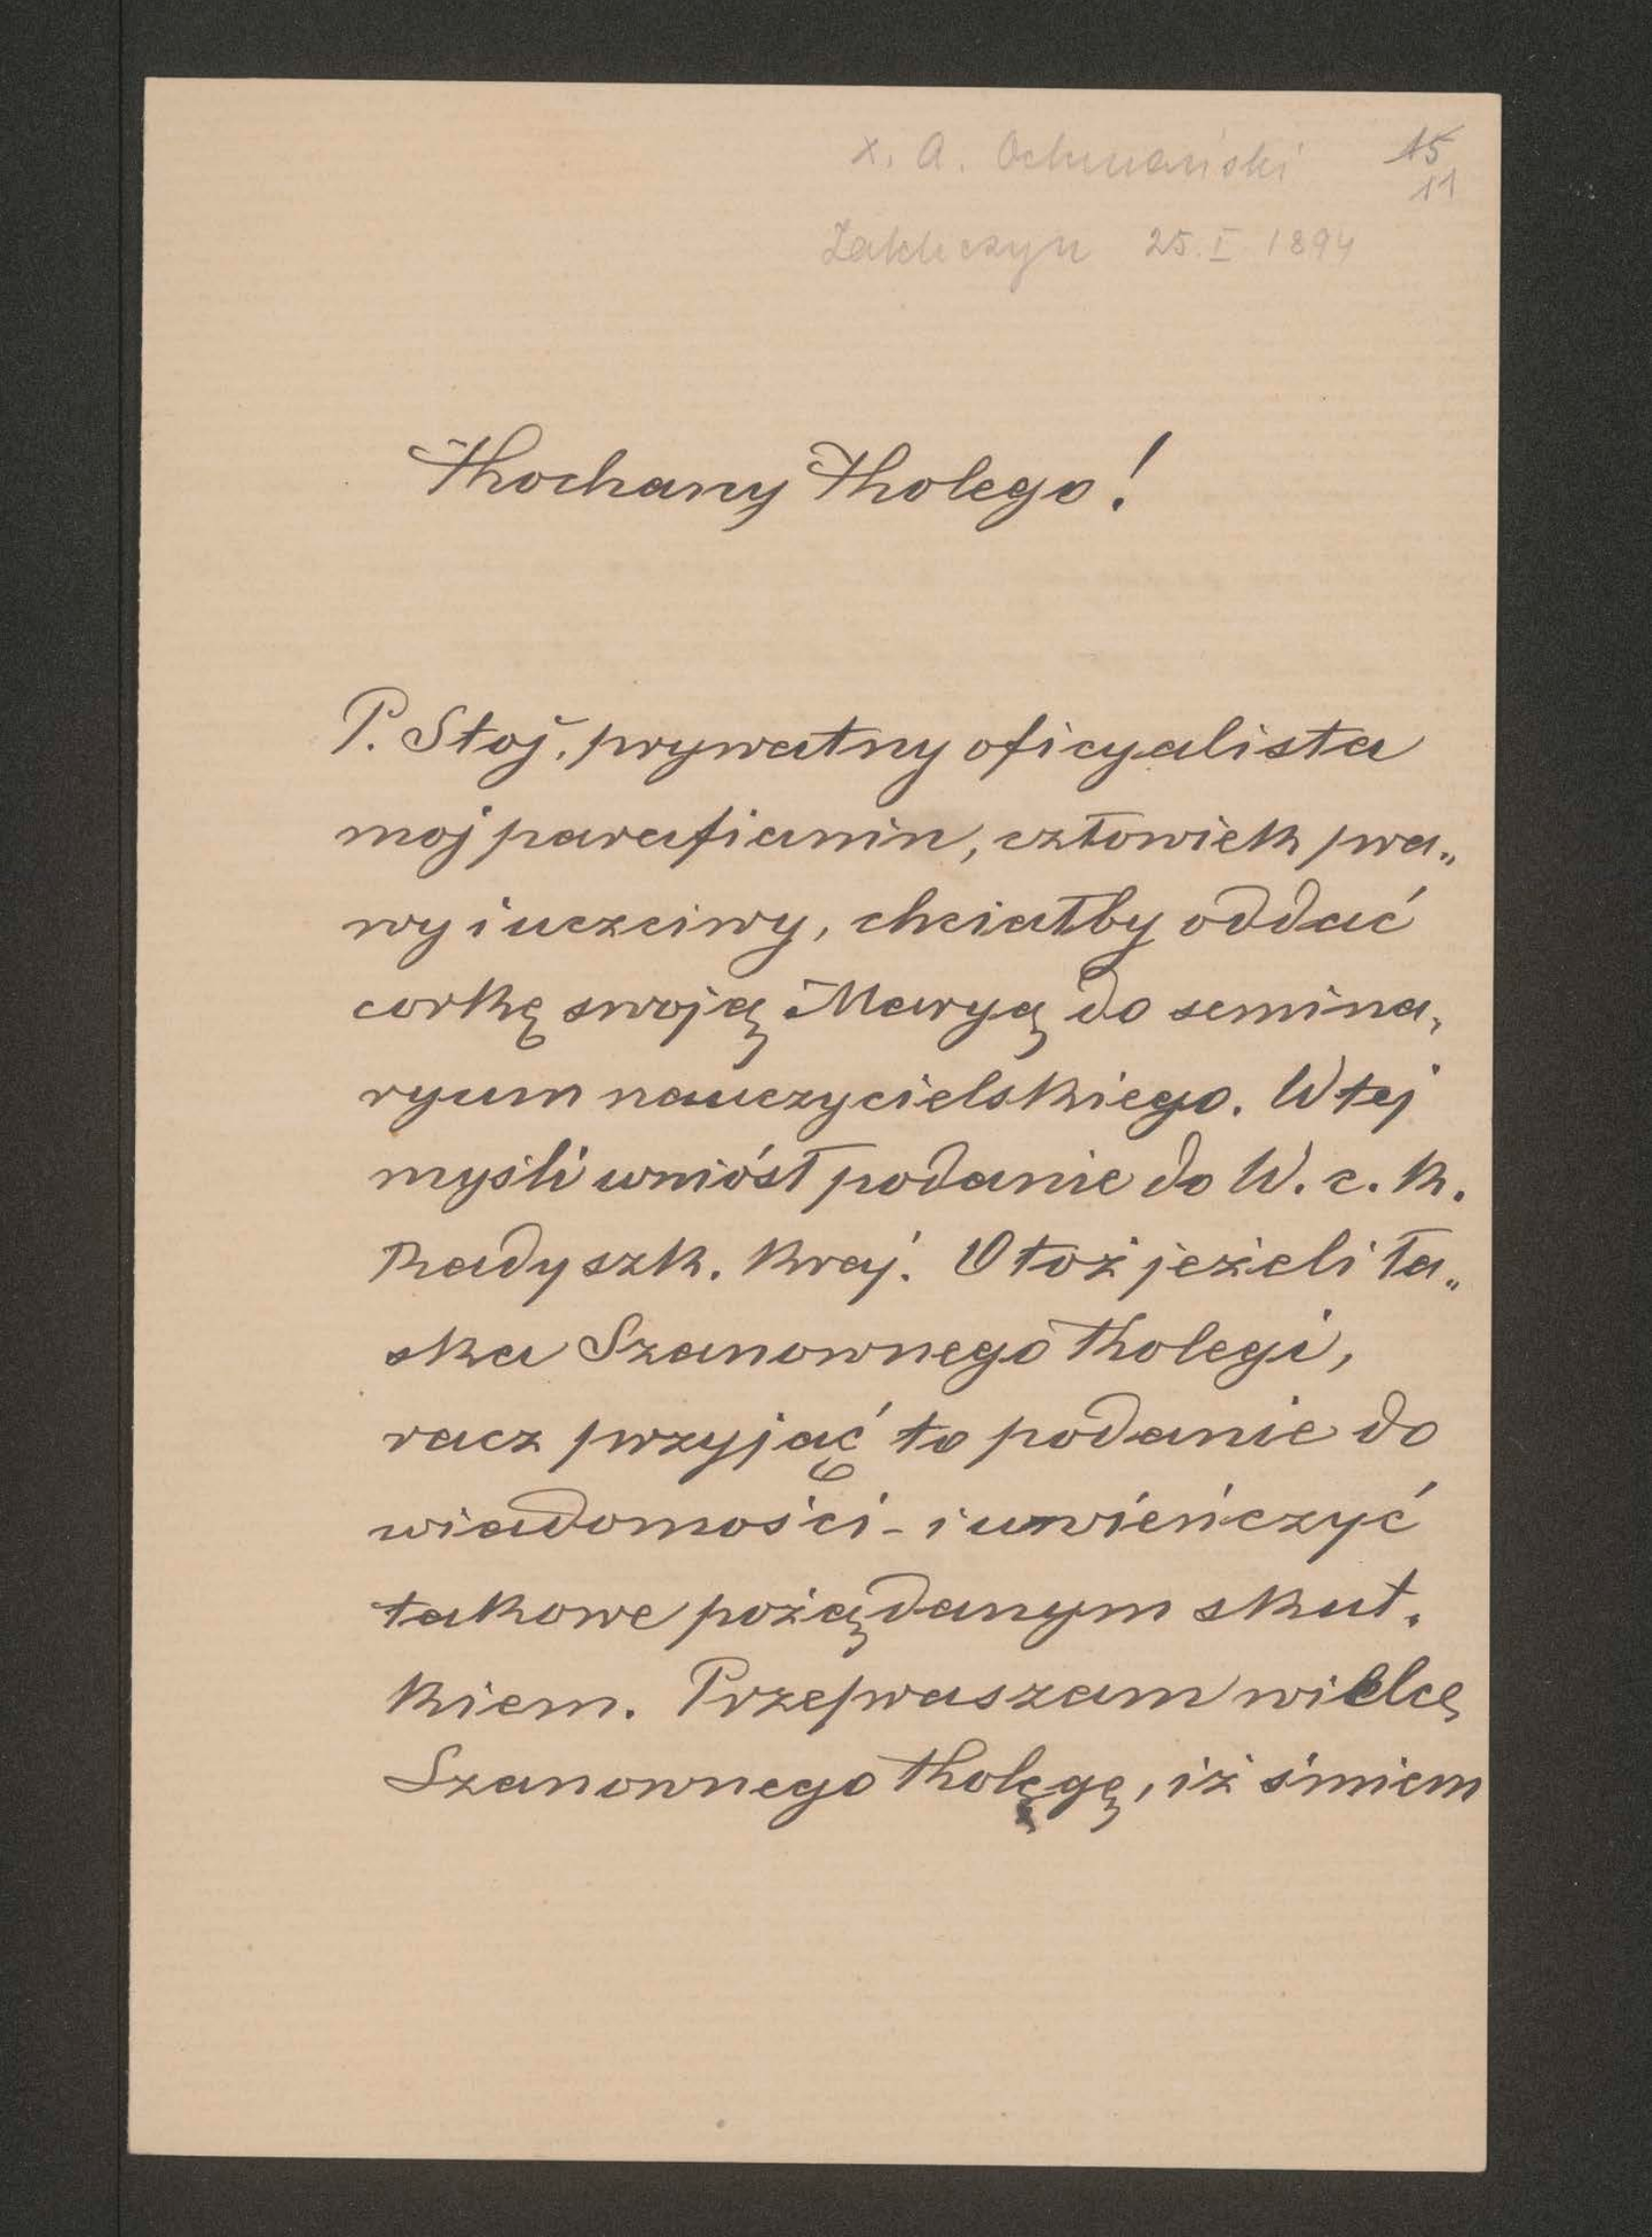 x. A. Ochmański 15
11
Zakliczyn 25. I 1894
Kochany Kolego!
P. Stoj, prywatny oficyalista
moj parafianin, człowiek pra„
wy i uczciwy, chciałby oddać
corkę swoją Maryą do semina„
ryum nauczycielskiego. W tej
myśli wniósł podanie do W. c. k.
Rady szk. kraj. Otoż jeżeli ła„
ska Szanownego Kolegi,
racz przyjąć to podanie do
wiadomości - i uwieńczyć
takowe pożądanym skut.
kiem. Przepraszam wielce
Szanownego Kolęgę, iż śmiem